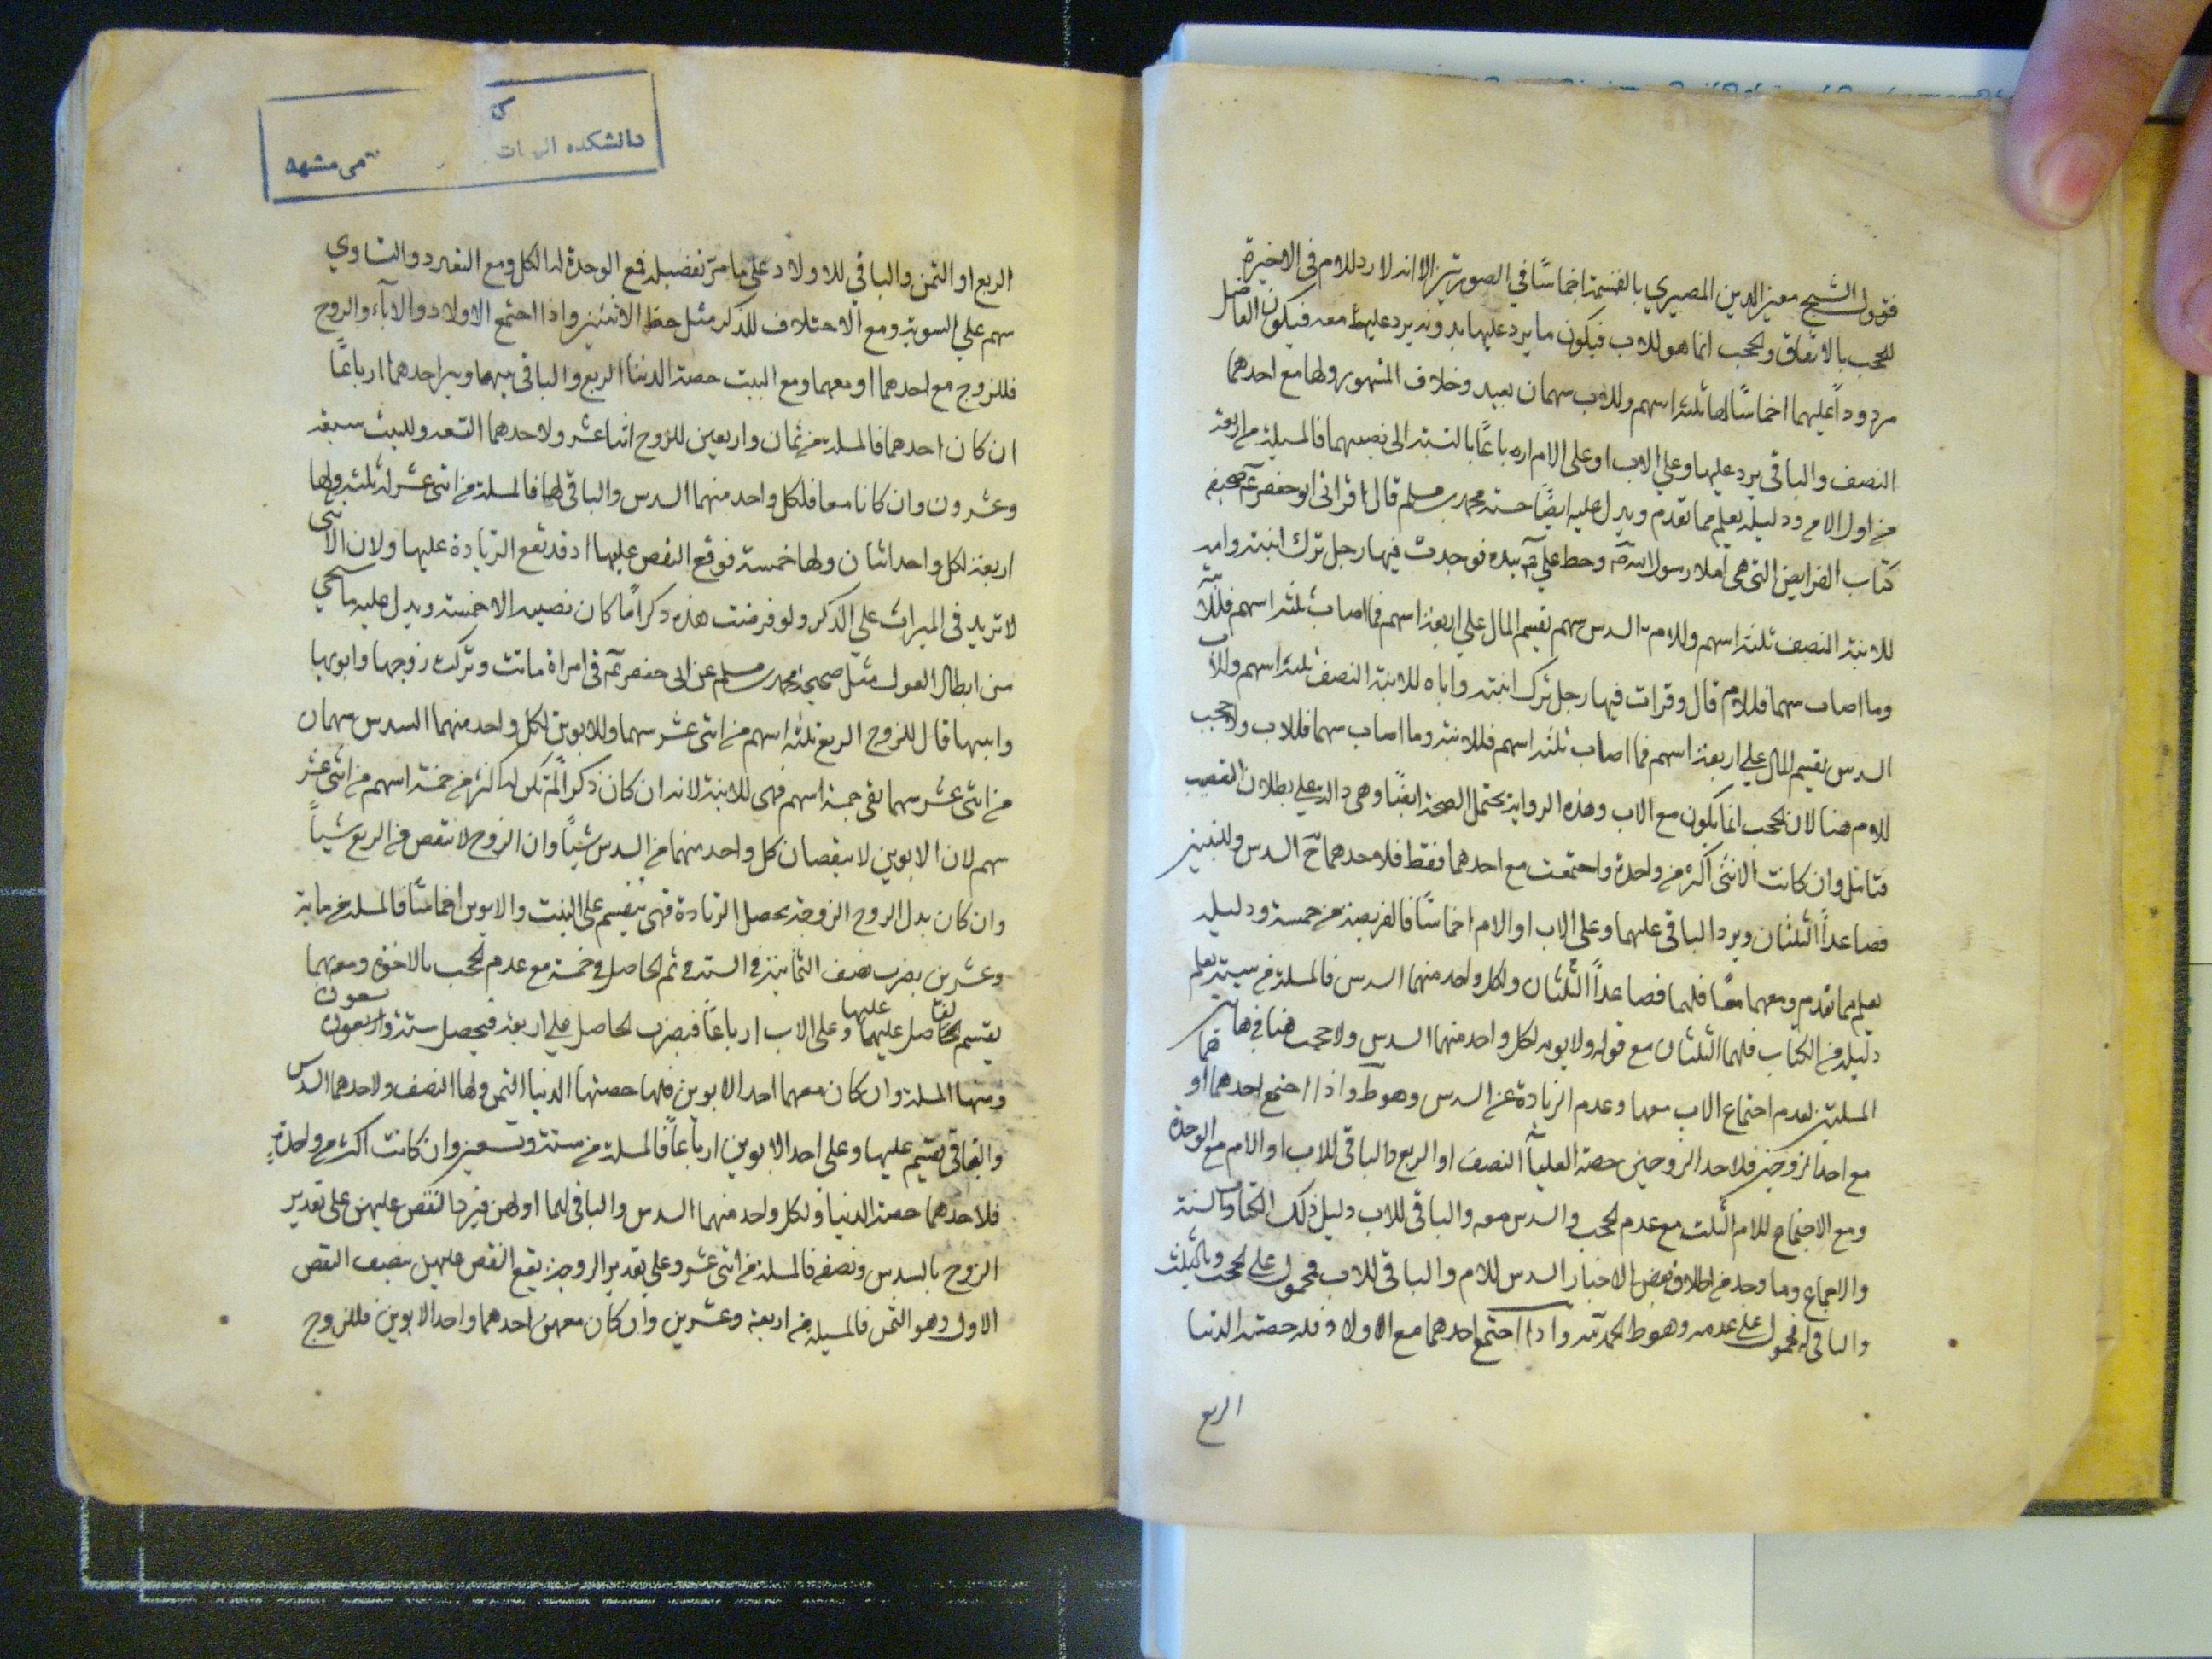 فقول الشيخ معين الدين المصري بالقسمة اخماسًا في الصورتين الا انه لا رد للام فى الاخيرة
للحجب بالاتفاق والحجب انما هو للاب فيكون ما يرد عليها بدونه يرد عليهما معه فيكون الفاضل
مردوداً عليهما اخماسًا لها ثلثة اسهم وللاب سهمان بعيد وخلاف المشهور ولها مع احدهما
النصف والباقى يرد عليها وعلى الاب او على الام ارباعًا بالنسبة الى نصيبهما فالمسئلة من اربعة
من اول الامر ودليله يعلم مما تقدم ويدل عليه ايضًا حسنة محمد بن مسلم قال اقرانى ابو جعفر ع صحيفة
كتاب الفرايض التى هى املاء رسول الله ص وخط على ع بيده فوجدت فيها رجل ترك ابنته وامه
للابنة النصف ثلثة اسهم وللام السدس سهم يقسم المال على اربعة اسهم فما اصاب ثلثة اسهم فللابنة
وما اصاب سهما فللام قال وقرات فيها رجل ترك ابنته واباه للابنة النصف ثلثة اسهم وللاب
السدس يقسم المال على اربعة اسهم فما اصاب ثلثة اسهم فللابنة وما اصاب سهما فللاب ولا حجب
للام هنا لان الحجب انما يكون مع الاب وهذه الرواية تحتمل الصحة ايضًا وهى دالة على بطلان التعصيب
فتامل وان كانت الانثى اكثر من واحدة واجتمعت مع احدهما فقط فلاحدهما ح السدس وللبنتين
فصاعداً الثلثان ويرد الباقى عليهما وعلى الاب او الام اخماسًا فالفريضة من خمسة ودليله
يعلم مما تقدم ومعهما معًا فلهما فصاعداً الثلثان ولكل واحد منهما السدس فالمسئلة من ستة يعلم
دليله من الكتاب فلهما الثلثان مع قوله ولابويه لكل واحد منهما السدس ولا حجب هنا فى هاتين
المسلتين لعدم اجتماع الاب معها وعدم الزيادة عن السدس وهو ظ واذا اجتمع احدهما او هما
مع احد الزوجين فلاحد الزوجين حصته العليا النصف او الربع والباقى للاب او الام مع الوحدة
ومع الاجتماع للام الثلث مع عدم الحجب والسدس معه والباقى للاب دليل ذلك الكتاب والسنة
والاجماع وما وجد من اطلاق بعض الاخبار السدس للام والباقى للاب فمحمول على الحجب وبالثلث
والباقى له فمحمول على عدمه وهو ظ الحمد لله واذا اجتمع احدهما مع الاولاد فله حصته الدنيا
الربع
دانشكده الهيات
مى مشهد
الربع او الثمن والباقي للاولاد على ما مرّ تفصيله فمع الوحدة لها الكل ومع التعدد والتساوي
سهم علي السوية ومع الاختلاف للذكر مثل حظ الانثيين واذا اجتمع الاولاد والاباء والزوج
فللزوج مع احدهما او معهما ومع البنت حصته الدنيا الربع والباقى بينهما وبين احدهما ارباعًا
ان كان احدهما فالمسلة من ثمان واربعين للزوج اثنا عشر ولاحدهما التسعه وللبنت سبعة
وعشرون وان كانا معا فلكل واحد منهما السدس والباقى لها فالمسلة من اثنى عشر له ثلثة ولهما
اربعة لكل واحد اثنان ولها خمسة فوقع النقص عليها اذ قد تقع الزيادة عليها ولان الانثى
لا تزيد فى الميراث علي الذكر ولو فرضت هذه ذكرا ما كان نصيبه الا خمسة ويدل عليه ما سيجي
من ابطال العول مثل صحيحة محمد بن مسلم عن ابى جعفر ع فى امراة ماتت وتركت زوجها وابويها
وابنتها قال للزوج الربع ثلثة اسهم من اثنى عشر سهما وللابوين لكل واحد منهما السدس سهمان
من اثنى عشر سهما بقى خمسة اسهم فهى للابنة لانه ان كان ذكراً لم تكن له اكثر من خمسة اسهم من اثنى عشر
سهم لان الابوين لا ينقصان كل واحد منهما من السدس شيئًا وان الزوج لا ينقص من الربع شيئاً
وان كان بدل الزوج الزوجة يحصل الزيادة فهى تنقسم على البنت والابوين اخماسًا فالمسلة من ماية
وعشرين بضرب نصف الثمانية فى الستة ثم الحاصل فى خمسة مع عدم الحجب بالاخوة ومعهما
يقسم الحاصل عليها وعلى الاب ارباعًا فيضرب الحاصل على اربعة فيحصل ستة واربعون
ومنها المسلة وان كان معهما احد الابوين فلها حصتها الدنيا الثمن ولها النصف ولاحدهما السدس
والباقى يقسم عليها وعلى احد الابوين ارباعًا فالمسلة من ستة وتسعين وان كانت اكثر من واحدة
فلاحدهما حصته الدنيا ولكل واحد منهما السدس والباقى لهما او لهن فيرد النقص عليهن على تقدير
الزوج بالسدس ونصفه فالمسلة من اثنى عشر وعلى تقدير الزوجة يقع النقص عليهن بنصف النقص
الاول وهو الثمن فالمسيلة من اربعة وعشرين وان كان معهن احدهما واحد الابوين فللزوج